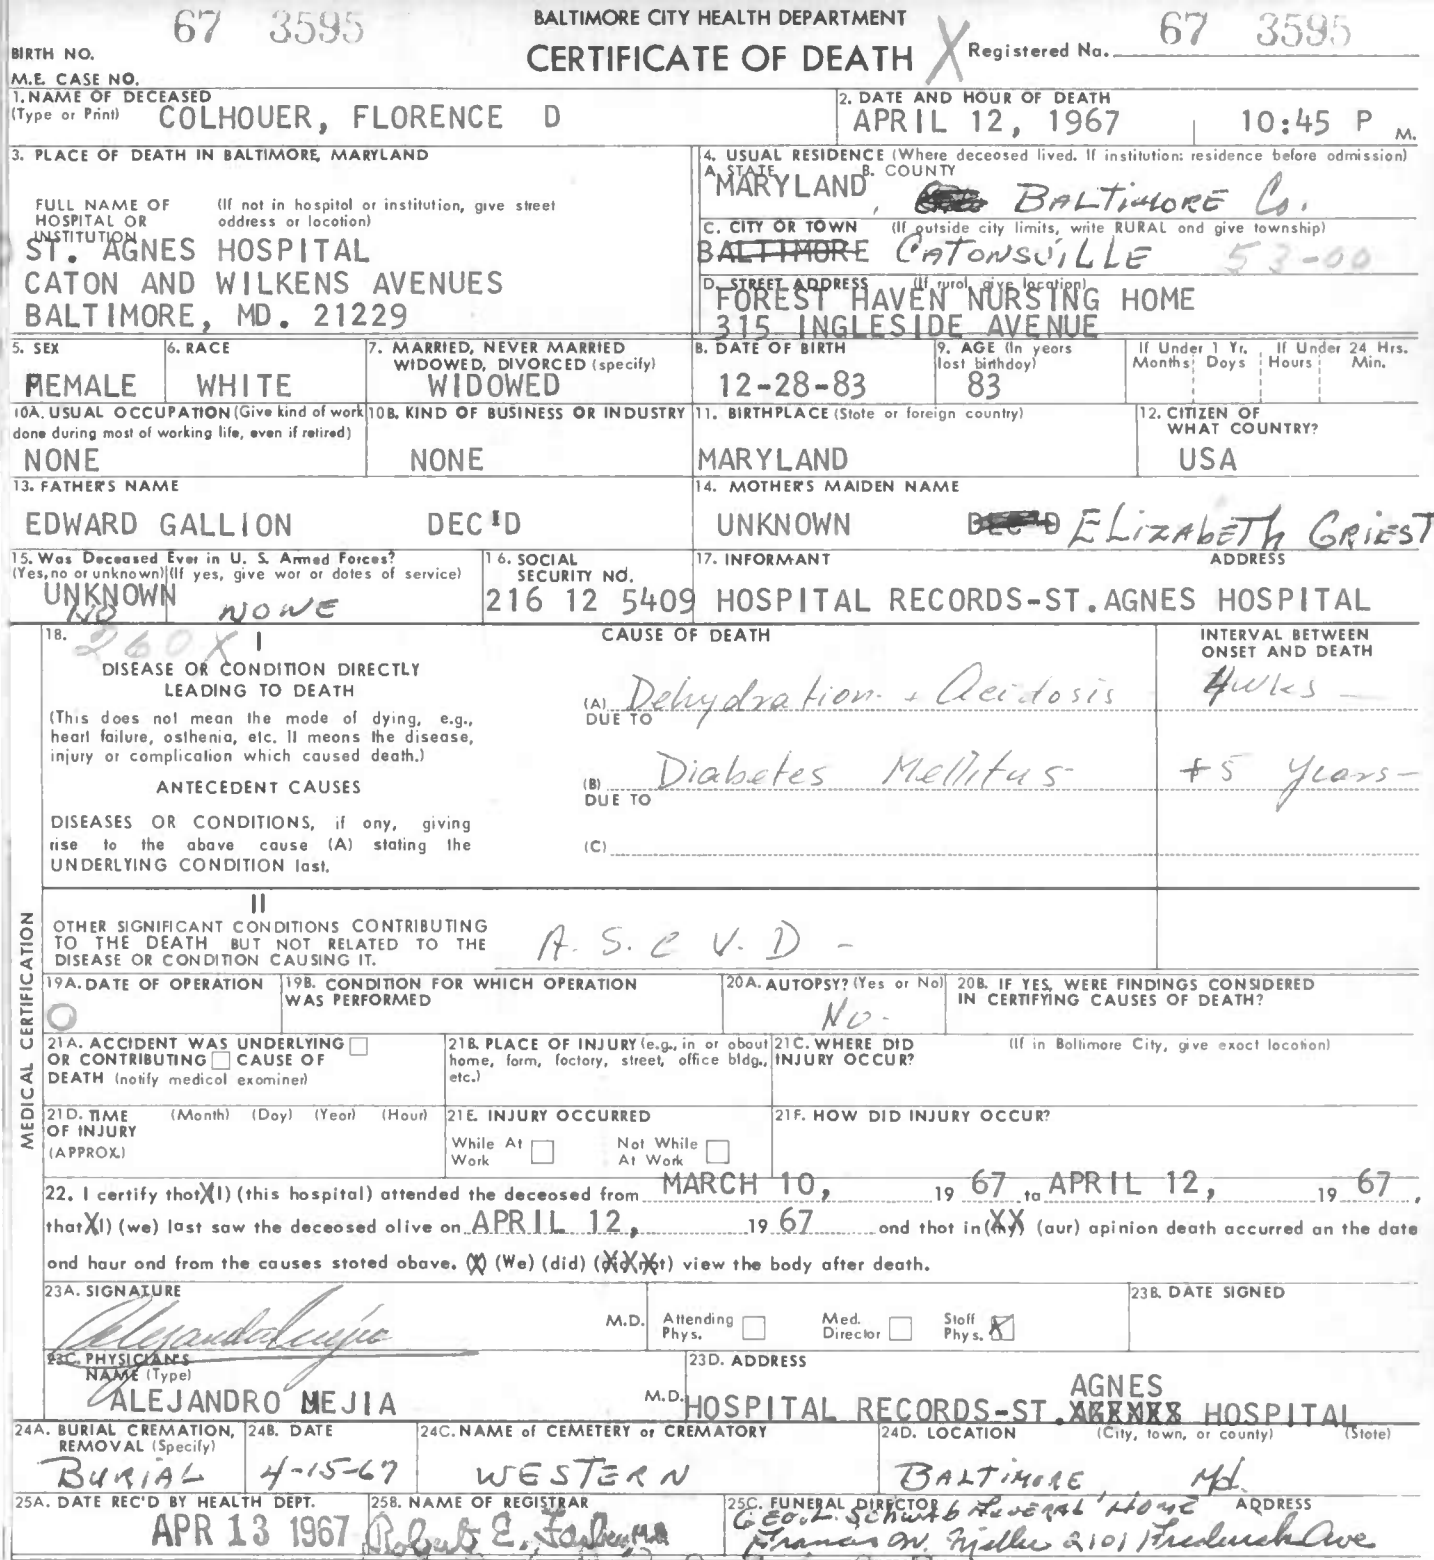 67 3595
BALTIMORE CITY HEALTH DEPARTMENT
CERTIFICATE OF DEATH
X
Registered No. 67 3595
BIRTH NO.
M.E. CASE NO.
1. NAME OF DECEASED
(Type or Print) COLHOUER, FLORENCE D
2. DATE AND HOUR OF DEATH
APRIL 12, 1967 10:45 P M.
3. PLACE OF DEATH IN BALTIMORE, MARYLAND
FULL NAME OF HOSPITAL OR INSTITUTION
(If not in hospital or institution, give street address or location)
ST. AGNES HOSPITAL
CATON AND WILKENS AVENUES
BALTIMORE, MD. 21229
4. USUAL RESIDENCE (Where deceased lived. If institution: residence before admission)
A. STATE B. COUNTY
MARYLAND, BALTIMORE Co.
C. CITY OR TOWN (If outside city limits, write RURAL and give township)
BALTIMORE CATONSVILLE 53-00
D. STREET ADDRESS (If rural, give location)
FOREST HAVEN NURSING HOME
315 INGLESIDE AVENUE
5. SEX
FEMALE
6. RACE
WHITE
7. MARRIED, NEVER MARRIED
WIDOWED, DIVORCED (specify)
WIDOWED
8. DATE OF BIRTH
12-28-83
9. AGE (In years last birthday)
83
If Under 1 Yr. If Under 24 Hrs.
Months Days Hours Min.
10A. USUAL OCCUPATION (Give kind of work done during most of working life, even if retired)
NONE
10B. KIND OF BUSINESS OR INDUSTRY
NONE
11. BIRTHPLACE (State or foreign country)
MARYLAND
12. CITIZEN OF WHAT COUNTRY?
USA
13. FATHER'S NAME
EDWARD GALLION DEC'D
14. MOTHER'S MAIDEN NAME
UNKNOWN DEC'D ELIZABETH GRIEST
15. Was Deceased Ever in U. S. Armed Forces?
(Yes, no or unknown) (If yes, give war or dates of service)
UNKNOWN
NO NONE
16. SOCIAL SECURITY NO.
216 12 5409
17. INFORMANT ADDRESS
HOSPITAL RECORDS-ST.AGNES HOSPITAL
MEDICAL CERTIFICATION
18. 260X I
CAUSE OF DEATH
INTERVAL BETWEEN ONSET AND DEATH
DISEASE OR CONDITION DIRECTLY
LEADING TO DEATH
(This does not mean the mode of dying, e.g.,
heart failure, asthenia, etc. It means the disease,
injury or complication which caused death.)
(A) Dehydration + Acidosis 4 wks -
DUE TO
ANTECEDENT CAUSES
(B) Diabetes Mellitus - +5 years -
DUE TO
DISEASES OR CONDITIONS, if any, giving
rise to the above cause (A) stating the
UNDERLYING CONDITION last.
(C)
II
OTHER SIGNIFICANT CONDITIONS CONTRIBUTING
TO THE DEATH BUT NOT RELATED TO THE
DISEASE OR CONDITION CAUSING IT.
A. S. C V. D -
19A. DATE OF OPERATION
O
19B. CONDITION FOR WHICH OPERATION WAS PERFORMED
20A. AUTOPSY? (Yes or No)
No.
20B. IF YES, WERE FINDINGS CONSIDERED IN CERTIFYING CAUSES OF DEATH?
21A. ACCIDENT WAS UNDERLYING
OR CONTRIBUTING CAUSE OF
DEATH (notify medical examiner)
21B. PLACE OF INJURY (e.g., in or about home, farm, factory, street, office bldg., etc.)
21C. WHERE DID INJURY OCCUR?
(If in Baltimore City, give exact location)
21D. TIME OF INJURY (APPROX.)
(Month) (Day) (Year) (Hour)
21E. INJURY OCCURRED
While At Work Not While At Work
21F. HOW DID INJURY OCCUR?
22. I certify that X(I) (this hospital) attended the deceased from MARCH 10, 19 67 to APRIL 12, 19 67,
that X(I) (we) last saw the deceased alive on APRIL 12, 19 67 and that in (my) (our) opinion death occurred on the date
and hour and from the causes stated above. (X) (We) (did) (did not) view the body after death.
23A. SIGNATURE
Alejandro Mejia
M.D.
Attending Phys. Med. Director Staff Phys. X
23B. DATE SIGNED
23C. PHYSICIAN'S NAME (Type)
ALEJANDRO MEJIA M.D.
23D. ADDRESS
AGNES
HOSPITAL RECORDS-ST.XXXXXX HOSPITAL
24A. BURIAL CREMATION, REMOVAL (Specify)
BURIAL
24B. DATE
4-15-67
24C. NAME of CEMETERY or CREMATORY
WESTERN
24D. LOCATION (City, town, or county) (State)
BALTIMORE, Md.
25A. DATE REC'D BY HEALTH DEPT.
APR 13 1967
25B. NAME OF REGISTRAR
Robert E. Farber, M.D.
25C. FUNERAL DIRECTOR ADDRESS
GEO. L. Schwab Funeral Home
Francis W. Miller 2101 Frederick Ave